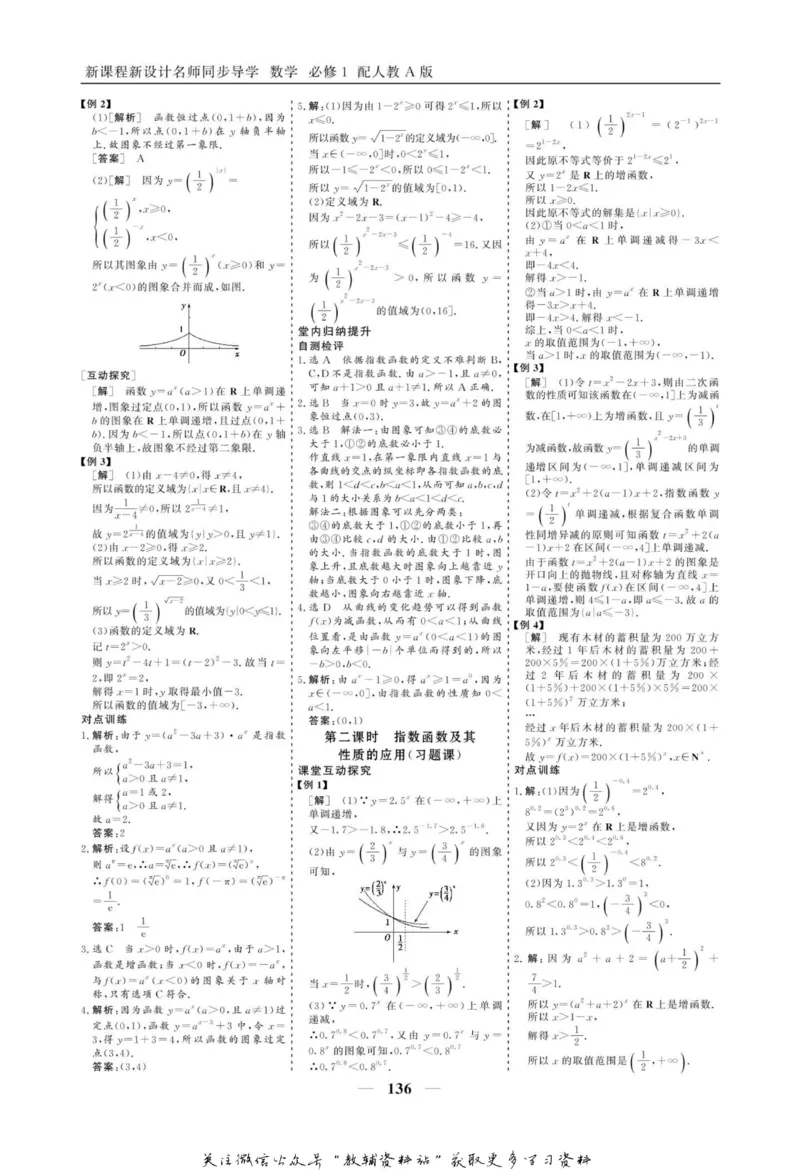 新课程新设计名师同步导学 数学 必修1 配人教A版
【例2】
(1)[解析] 函数恒过点(0,1+b),因为
b<-1,所以点(0,1+b)在 y 轴负半轴
上.故图象不经过第一象限.
[答案] A
(2)[解] 因为 y=(1/2)^|x|=
{(1/2)^x,x≥0,
(1/2)^-x,x<0,
所以其图象由 y=(1/2)^x(x≥0)和 y=
2^x(x<0)的图象合并而成,如图.
y
1
O x
[互动探究]
[解] 函数 y=a^x(a>1)在 R 上单调递
增,图象过定点(0,1),所以函数 y=a^x+
b 的图象在 R 上单调递增,且过点(0,1+
b).因为 b<-1,所以点(0,1+b)在 y 轴
负半轴上,故图象不经过第二象限.
【例3】
[解] (1)由 x-4≠0,得 x≠4,
所以函数的定义域为{x|x∈R,且 x≠4}.
因为 1/(x-4)≠0,所以 2^(1/(x-4))≠1,
故 y=2^(1/(x-4)) 的值域为{y|y>0,且 y≠1}.
(2)由 x-2≥0,得 x≥2.
所以函数的定义域为{x|x≥2}.
当 x≥2 时,√(x-2)≥0,又 0<1/3<1,
所以 y=(1/3)^√(x-2) 的值域为{y|0<y≤1}.
(3)函数的定义域为 R.
记 t=2^x>0.
则 y=t²-4t+1=(t-2)²-3.故当 t=
2,即 2^x=2,
解得 x=1 时,y 取得最小值-3.
所以函数的值域为[-3,+∞).
对点训练
1.解析:由于 y=(a²-3a+3)·a^x 是指数
函数,
所以{a²-3a+3=1,
a>0 且 a≠1,
解得{a=1 或 2,
a>0 且 a≠1.
故 a=2.
答案:2
2.解析:设 f(x)=a^x(a>0 且 a≠1),
则 a^π=e,∴a=^π√e,∴f(x)=(^π√e)^x,
∴f(0)=(^π√e)^0=1,f(-π)=(^π√e)^-π
=1/e.
答案:1 1/e
3.选 C 当 x>0 时,f(x)=a^x,由于 a>1,
函数是增函数;当 x<0 时,f(x)=-a^x,
与 f(x)=a^x(x<0)的图象关于 x 轴对
称,只有选项 C 符合.
4.解析:因为函数 y=a^x(a>0,且 a≠1)过
定点(0,1),函数 y=a^(x-3)+3 中,令 x=
3,得 y=1+3=4,所以函数的图象过定
点(3,4).
答案:(3,4)
5.解:(1)因为由 1-2^x≥0 可得 2^x≤1,所以
x≤0.
所以函数 y=√(1-2^x)的定义域为(-∞,0].
当 x∈(-∞,0]时,0<2^x≤1,
所以-1≤-2^x<0,所以 0≤1-2^x<1.
所以 y=√(1-2^x)的值域为[0,1).
(2)定义域为 R.
因为 x²-2x-3=(x-1)²-4≥-4,
所以(1/2)^(x²-2x-3)≤(1/2)^-4=16.又因
为(1/2)^(x²-2x-3)>0,所以函数 y=
(1/2)^(x²-2x-3)的值域为(0,16].
堂内归纳提升
自测检评
1.选 A 依据指数函数的定义不难判断 B,
C,D 不是指数函数.由 a>-1,且 a≠0,
可知 a+1>0 且 a+1≠1.所以 A 正确.
2.选 B 当 x=0 时 y=3,故 y=a^x+2 的图
象恒过点(0,3).
3.选 B 解法一:由图象可知③④的底数必
大于 1,①②的底数必小于 1.
作直线 x=1,在第一象限内直线 x=1 与
各曲线的交点的纵坐标即各指数函数的底
数,则 1<d<c,b<a<1,从而可知 a,b,c,d
与 1 的大小关系为 b<a<1<d<c.
解法二:根据图象可以先分两类:
③④的底数大于 1,①②的底数小于 1,再
由③④比较 c,d 的大小.由①②比较 a,b
的大小.当指数函数的底数大于 1 时,图
象上升,且底数越大时图象向上越靠近 y
轴;当底数大于 0 小于 1 时,图象下降,底
数越小,图象向右越靠近 x 轴.
4.选 D 从曲线的变化趋势可以得到函数
f(x)为减函数,从而有 0<a<1;从曲线
位置看,是由函数 y=a^x(0<a<1)的图
象向左平移|-b|个单位而得到的,所以
-b>0,b<0.
5.解析:由 a^x-1≥0,得 a^x≥1=a^0,因为
x∈(-∞,0],由指数函数的性质知 0<
a<1.
答案:(0,1)
第二课时 指数函数及其
性质的应用(习题课)
课堂互动探究
【例1】
[解] (1)∵y=2.5^x 在(-∞,+∞)上
单调递增,
又-1.7>-1.8,∴2.5^-1.7>2.5^-1.8.
(2)由 y=(2/3)^x 与 y=(3/4)^x 的图象
可知,
y=(2/3)^x y y=(3/4)^x
1
O 1/2 x
当 x=1/2 时,(3/4)^(1/2)>(2/3)^(1/2).
(3)∵y=0.7^x 在(-∞,+∞)上单调
递减,
∴0.7^0.8<0.7^0.7,又由 y=0.7^x 与 y=
0.8^x 的图象可知,0.7^0.7<0.8^0.7
∴0.7^0.8<0.8^0.7.
【例2】
[解] (1)(1/2)^(2x-1)=(2^-1)^(2x-1)
=2^(1-2x),
因此原不等式等价于 2^(1-2x)≤2^1,
又 y=2^x 是 R 上的增函数,
所以 1-2x≤1.
所以 x≥0.
因此原不等式的解集是{x|x≥0}.
(2)①当 0<a<1 时,
由 y=a^x 在 R 上单调递减得-3x<
x+4,
即-4x<4.
解得 x>-1.
②当 a>1 时,由 y=a^x 在 R 上单调递增
得-3x>x+4.
即-4x>4.解得 x<-1.
综上,当 0<a<1 时,
x 的取值范围为(-1,+∞),
当 a>1 时,x 的取值范围为(-∞,-1).
【例3】
[解] (1)令 t=x²-2x+3,则由二次函
数的性质可知该函数在(-∞,1]上为减函
数,在[1,+∞)上为增函数,且 y=(1/3)^t
为减函数,故函数 y=(1/3)^(x²-2x+3) 的单调
递增区间为(-∞,1],单调递减区间为
[1,+∞).
(2)令 t=x²+2(a-1)x+2,指数函数 y
=(1/2)^t 单调递减,根据复合函数单调
性同增异减的原则可知函数 t=x²+2(a
-1)x+2 在区间(-∞,4]上单调递减.
由于函数 t=x²+2(a-1)x+2 的图象是
开口向上的抛物线,且对称轴为直线 x=
1-a,要使函数 f(x)在区间(-∞,4]上
单调递增,则 4≤1-a,即 a≤-3.故 a 的
取值范围为{a|a≤-3}.
【例4】
[解] 现有木材的蓄积量为 200 万立方
米,经过 1 年后木材的蓄积量为 200+
200×5%=200×(1+5%)万立方米;经
过 2 年后木材的蓄积量为 200×
(1+5%)+200×(1+5%)×5%=200×
(1+5%)² 万立方米;
…
经过 x 年后木材的蓄积量为 200×(1+
5%)^x 万立方米.
故 y=f(x)=200×(1+5%)^x,x∈N*.
对点训练
1.解:(1)因为(1/2)^-0.4=2^0.4,
8^0.2=(2^3)^0.2=2^0.6,
又因为 y=2^x 在 R 上是增函数,
所以 2^0.3<2^0.4<2^0.6,
所以 2^0.3<(1/2)^-0.4<8^0.2.
(2)因为 1.3^0.3>1.3^0=1,
0.8^2<0.8^0=1,(-3/4)^3<0,
所以 1.3^0.3>0.8^2>(-3/4)^3.
2.解:因为 a²+a+2=(a+1/2)²+
7/4>1.
所以 y=(a²+a+2)^x 在 R 上是增函数.
所以 x>1-x,
解得 x>1/2.
所以 x 的取值范围是(1/2,+∞).
136
关注微信公众号“教辅资料站”获取更多学习资料